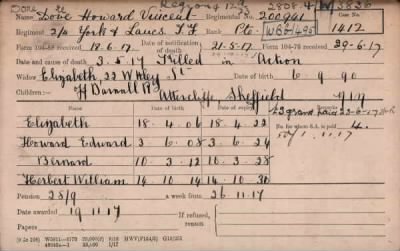 Name Dove Howard Vincent Regimental No. 200941 Case No.
Regiment 2/4 York & Lancs. T.F. Rank Pte. 1412
Form 104-88 received 18.6.17 Date of notification of death 21.5.17 Form 104-76 received 29-6-17
Date and cause of death 3.5.17 Killed in Action
Widow Elizabeth, 22 St 6.9.90
Children: off Darnall Rd Attercliffe Sheffield
Date of birth
Remarks
Elizabeth 18 4 06 18 4 22
Howard Edward 3 6 08 3 6 24
Bernard 10 3 12 10 3 28
Herbert William 14 10 14 14 10 30
No. for whom S.A. is paid 4.
1.11.17
Pension 28/9 a week from 26.11.17
Date awarded 19 11 17 If refused, reason
Papers